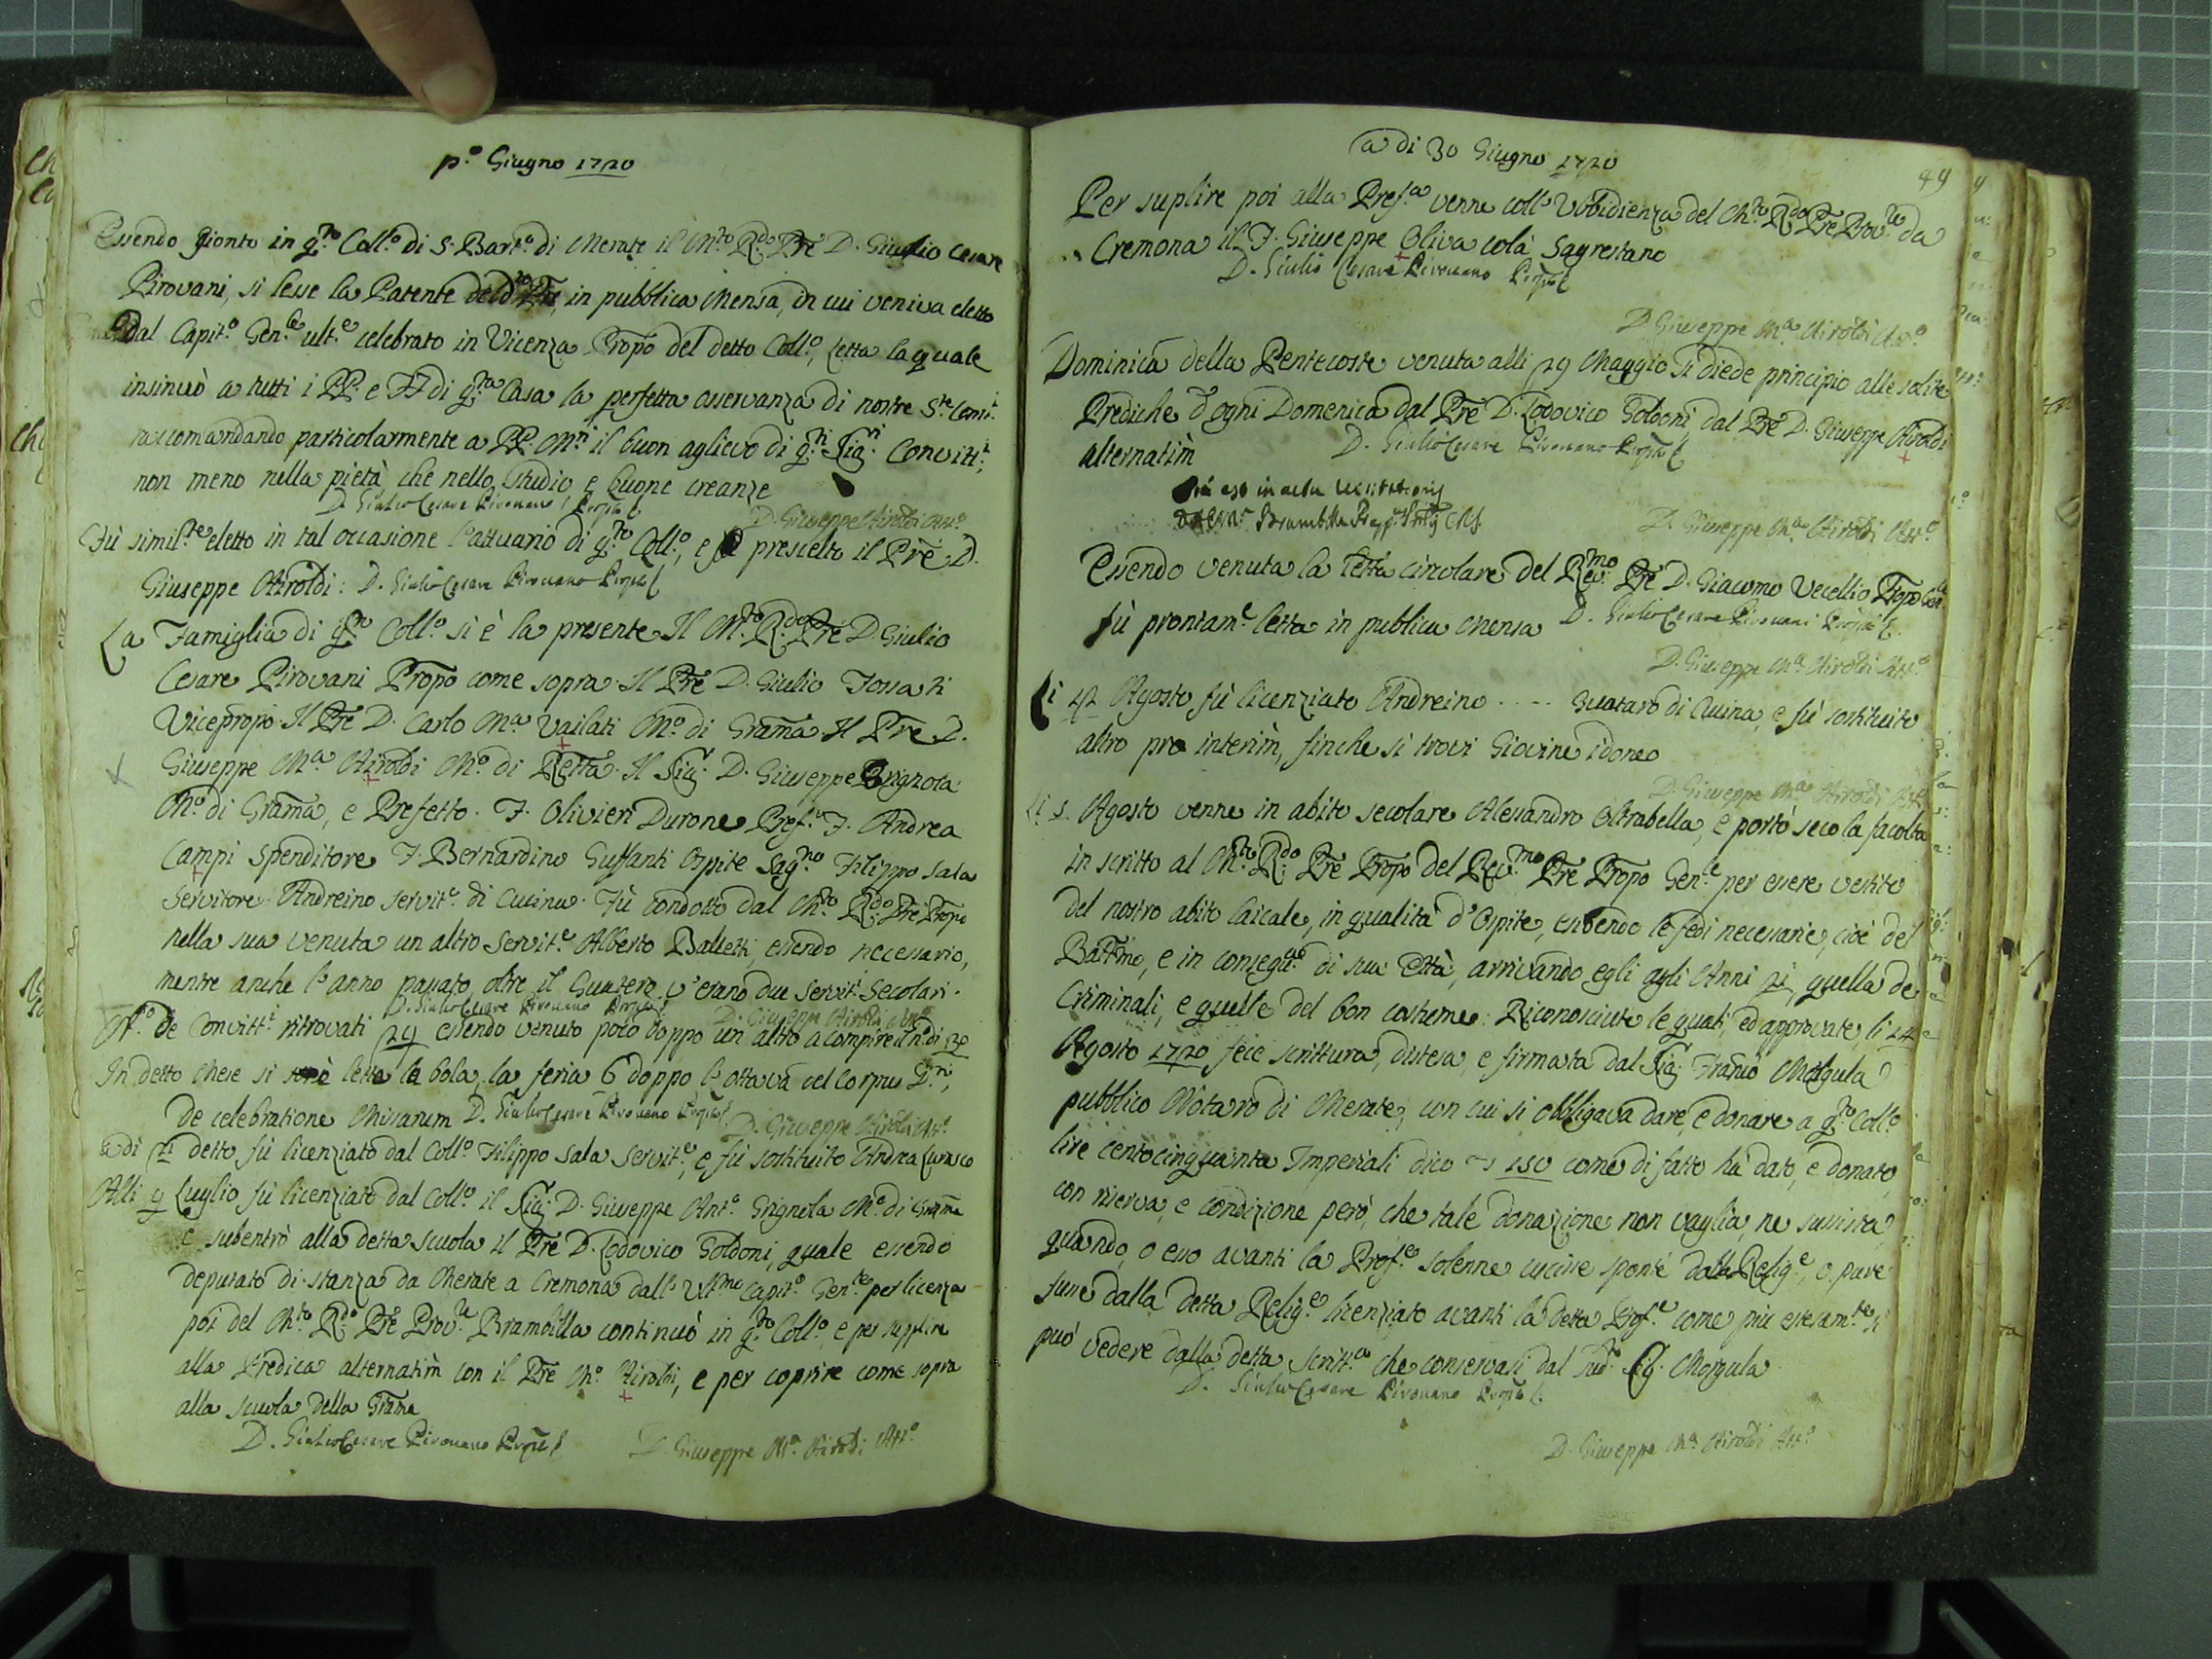 p.º Giugno 1720
Essendo gionto in q.to Coll.º di S. Bart.º di Merate il M.to R.do Prè D. Giulio Cesare
Pirovani, si lesse la Patente del d.to Prè, in pubblica Mensa, in cui veniva eletto
dal Capit.º Gen.le ult.º celebrato in Vicenza Propo del detto Coll.º, Letta la quale
insinuò a tutti i PP. e FF di q.ta Casa la perfetta osservanza di nostre S.te Const.i
raccomandando particolarmente a PP. M.ri il buon aglievo di q.ti Sig.ri Convitt.i,
non meno nella pietà, che nello studio, e buone creanze
D. Giulio Cesare Pirovano Propto
D. Giuseppe Airoldi Att.º
Fù simil.te eletto in tal occasione l'attuario di q.to Coll.º, e fù prescelto il Prè D.
Giuseppe Airoldi: D. Giulio Cesare Pirovano Propto
La Famiglia di q.to Coll.º si è la presente. Il M.to R.do Prè D. Giulio
Cesare Pirovani Propo come sopra. Il Prè D. Giulio Fossati
Vicepropo. Il Prè D. Carlo M.a Vailati M.º di Grama. Il Prè D.
Giuseppe M.a Airoldi M.º di Retta. Il Sig.r D. Giuseppe Grignola
M.º di Grama, e Prefetto. F. Olivieri Durone Pref.º F. Andrea
Campi Spenditore F. Bernardino Guffanti Ospite Sag.no Filippo Sala
Servitore. Andreino Servit.e di Cucina. Fù condotto dal M.to R.do Prè Propo
nella sua venuta un altro Servit.e Alberto Balletti, essendo necessario,
mentre anche l'anno passato, oltre il Guatero, v'erano due Servit.i Secolari.
D. Giulio Cesare Pirovano Propto
D. Giuseppe Airoldi Att.º
N.º de Convitt.i ritrovati 29 essendo venuto poco doppo un altro a compire il n. di 30
In detto Mese si letta la bola, la feria 6 doppo l'ottava del Corpus D.ni,
de celebratione Missarum D. Giulio Cesare Pirovano Propto
D. Giuseppe Airoldi Att.º
adi 21 detto fù licenziato dal Coll.º Filippo Sala Servit.e, e fù sostituito Andrea Curasco
Alli 9 Luglio fù licenziato dal Coll.º il Sig. D. Giuseppe Ant.º Grignola M.º di Grama
e subentrò alla detta scuola il Prè D. Lodovico Goldoni, quale essendo
deputato di stanza da Merate a Cremona dall' Ult.mo Capit.º Gen.le per licenza
poi del M.to R.do Prè Prov.le Brambilla continuò in q.to Coll.º, e per supplire
alla Predica alternatim con il Prè M.º Airoldi, e per coprire come sopra
alla scuola della Grama
D. Giulio Cesare Pirovano Propto
D. Giuseppe M.a Airoldi Att.º
a di 30 Giugno 1720
49
Per suplire poi alla Pref.a venne coll' Vobidienza del M.to R.do Prè Prov.le da
Cremona il F. Giuseppe Oliva colà Sagrestano
D. Giulio Cesare Pirovano Propto
D Giuseppe M.a Airoldi Att.º
Dominica della Pentecoste venuta alli 19 Maggio si diede principio alle solite
Prediche d'ogni Domenica dal Prè D. Lodovico Goldoni dal Prè D. Giuseppe Airoldi
alternatim
D. Giulio Cesare Pirovano Propto
est in actu Visitationis
Brambilla
D. Giuseppe M.a Airoldi Att.º
Essendo venuta la letta circolare del Rev.mo Prè D. Giacomo Vecellio Propo Gen.le
fù prontam.e letta in publica Mensa D. Giulio Cesare Pirovani Propto
D. Giuseppe M.a Airoldi Att.º
Li 12 Agosto fù licenziato Andreino .... Guataro di Cucina, e fù sostituito
altro pro interim, finche si trovi Giovine idoneo
D. Giuseppe M.a Airoldi Att.
Li 5. Agosto venne in abito secolare Alessandro Oltrabella, e portò seco la facolta
in scritto al M.to R.do Prè Propo del Rev.mo Prè Propo Gen.le per essere vestito
del nostro abito laicale, in qualità d'Ospite, esibendo le fedi necessarie, cioè del
Battmo, e in conseg.za di sua Età, arrivando egli agli Anni 21, quella de
Criminali, e quelle del bon costume: Riconosciute le quali, ed approvate, li 14
Agosto 1720 fece scrittura, distesa, e firmata dal Sig. Franco Morgula
pubblico Notaro di Merate, con cui si obbligava dare, e donare a q.to Coll.º
lire centocinquanta Imperiali dico 150 come di fatto ha dato, e donato,
con riserva, e condizione però, che tale donazione non vaglia, ne sussista,
quando, o esso avanti la Prof.e solenne uscisse sponte dalla Relig.e, o pure
fusse dalla detta Relig.e licenziato avanti la detta Prof.e come più estesam.te si
può vedere dalla detta Scritt.a che conservasi dal Sud.to Sig. Morgula
D. Giulio Cesare Pirovano Propto
D. Giuseppe M.a Airoldi Att.º